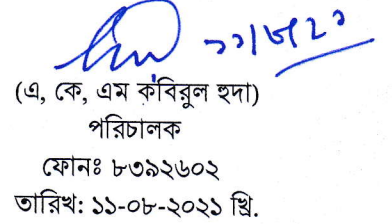 ১১/৮/২১
(এ, কে, এম কবিরুল হুদা)
পরিচালক
ফোনঃ ৮৩৯২৬০২
তারিখ: ১১-০৮-২০২১ খ্রি.